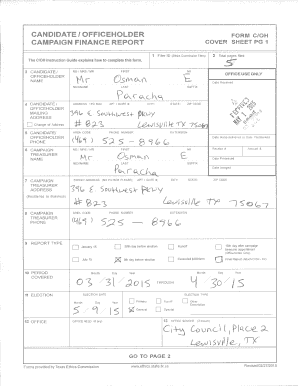 CANDIDATE / OFFICEHOLDER FORM C/OH
CAMPAIGN FINANCE REPORT COVER SHEET PG 1
The C/OH Instruction Guide explains how to complete this form.
1 Filer ID (Ethics Commission Filers)
2 Total pages filed:
5
3 CANDIDATE / OFFICEHOLDER NAME
MS / MRS / MR FIRST MI
Mr Osman E
NICKNAME LAST SUFFIX
Paracha
OFFICE USE ONLY
Date Received
4 CANDIDATE / OFFICEHOLDER MAILING ADDRESS
Change of Address
396 E Southwest Pkwy
# 823 Lewisville TX 75067
5 CANDIDATE/ OFFICEHOLDER PHONE
AREA CODE PHONE NUMBER EXTENSION
(469) 525-8966
6 CAMPAIGN TREASURER NAME
MS / MRS / MR FIRST MI
Mr Osman E
NICKNAME LAST SUFFIX
Paracha
7 CAMPAIGN TREASURER ADDRESS
(Residence or Business)
396 E Southwest Pkwy
# 823 Lewisville TX 75067
8 CAMPAIGN TREASURER PHONE
AREA CODE PHONE NUMBER EXTENSION
(469) 525-8966
9 REPORT TYPE
January 15
30th day before election
Runoff
15th day after campaign treasurer appointment (Officeholder Only)
July 15
8th day before election
10 PERIOD COVERED
Month Day Year
03/31/2015 THROUGH 4/30/15
11 ELECTION
ELECTION DATE
Month Day Year
5/9/15
ELECTION TYPE
Primary
Runoff
Other
General
Special
12 OFFICE
OFFICE HELD (if any)
13 OFFICE SOUGHT (if known)
City Council, Place 2
Lewisville, TX
GO TO PAGE 2
Forms provided by Texas Ethics Commission
www.ethics.state.tx.us